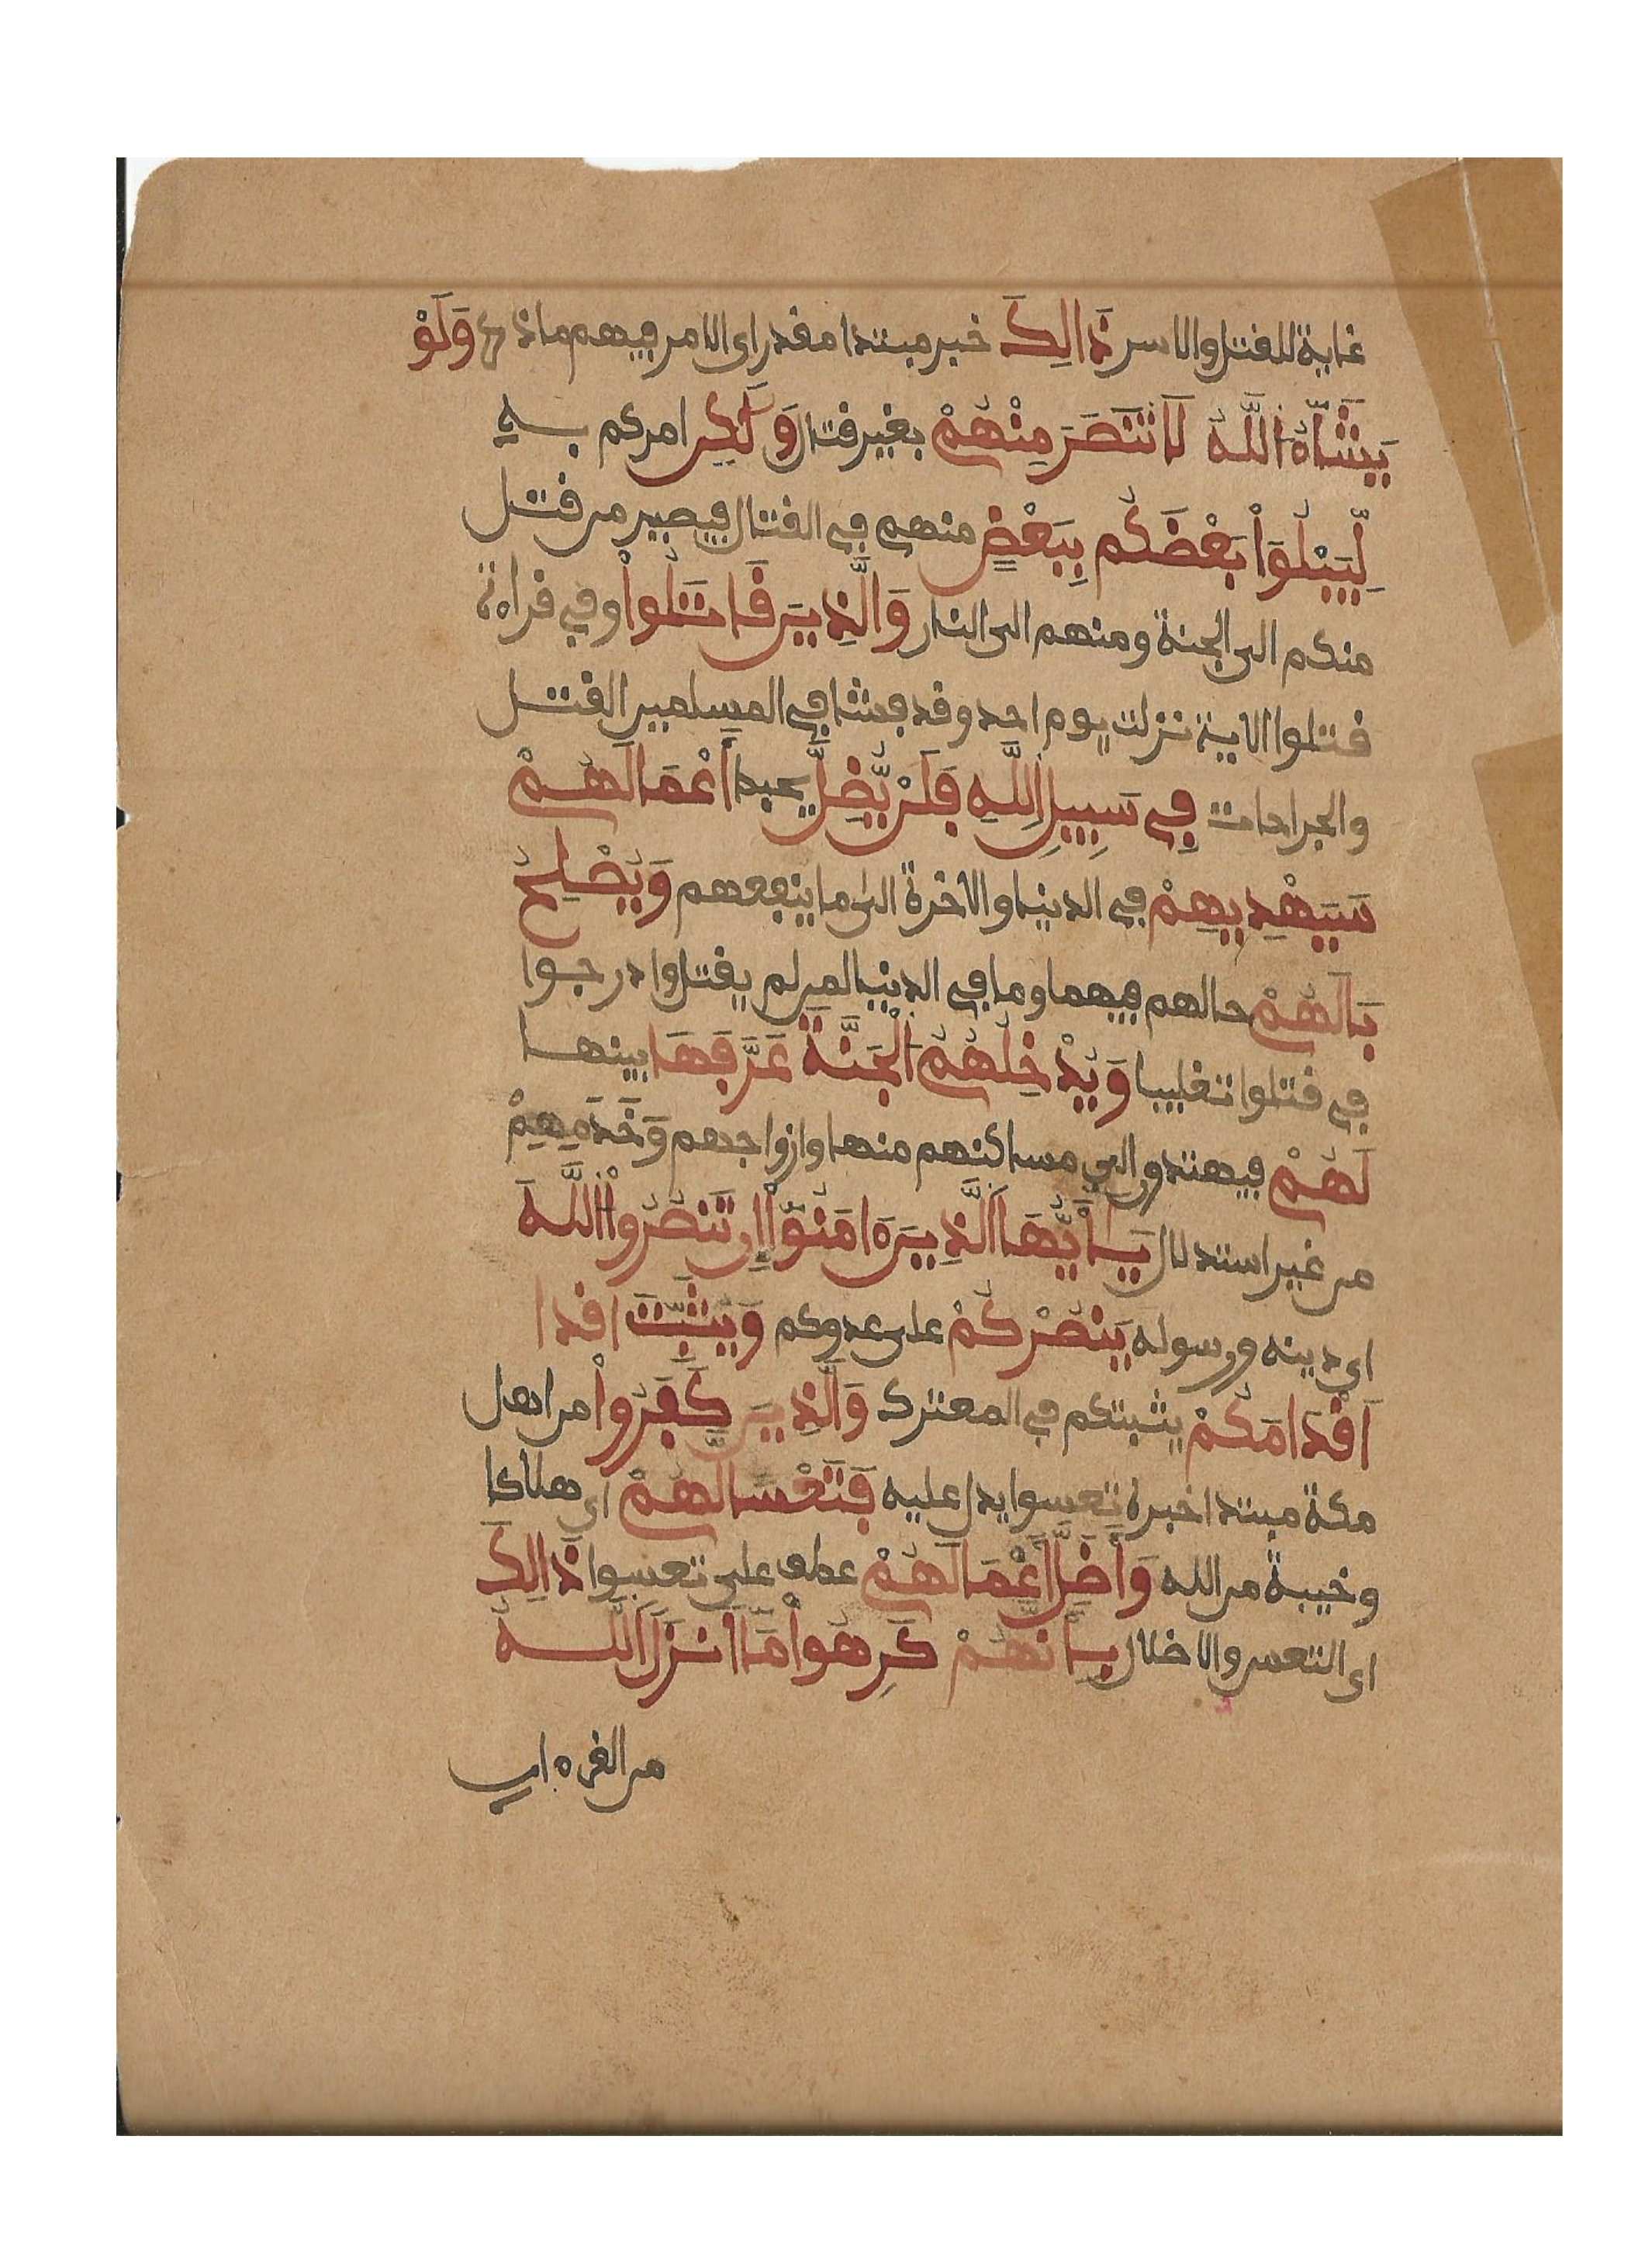 غاية للقتل والاسر ذَالِكَ خبر مبتدا مقدر اى الامر فيهم ما ذكر وَلَوْ
يَشَآءُ اللَّهُ لَانتَصَرَ مِنْهُمْ بغير قتال وَلَكِن امركم به
لِّيَبْلُوَاْ بَعْضَكُم بِبَعْضٍ منهم في القتال فيصير من قتل
منكم الى الجنة ومنهم الى النار وَالَّذِينَ قَاتَلُواْ وفي قراءة
قتلوا الاية نزلت يوم احد وقد فشا في المسلمين القتل
والجراحات فِي سَبِيلِ اللَّهِ فَلَنْ يُّضِلَّ يحبط أَعْمَالَهُمْ
سَيَهْدِيهِمْ في الدنيا والاخرة الى ما ينفعهم وَيُصْلِحُ
بَالَهُمْ حالهم فيهما وما في الدنيا لمن لم يقتلوا درجوا
في قتلوا تغليبا وَيُدْخِلُهُمُ الْجَنَّةَ عَرَّفَهَا بينها
لَهُمْ فيهتدون الى مساكنهم منها وازواجهم وَخَدَمِهِمْ
من غير استدلال يَاأَيُّهَا الَّذِينَ ءَامَنُوٓاْ إِن تَنصُرُواْ اللَّهَ
اى دينه ورسوله يَنصُرْكُمْ على عدوكم وَيُثَبِّتَ اقدا
اَقْدَامَكُمْ يثبتكم في المعترك وَالَّذِينَ كَفَرُواْ من اهل
مكة مبتدا خبره تعسوا يدل عليه فَتَعْسًا لَّهُمْ اى هلاكا
وخيبة من الله وَأَضَلَّ أَعْمَالَهُمْ عطف على تعسوا ذَالِكَ
اى التعس والاضلال بِأَنَّهُمْ كَرِهُواْ مَآ أَنزَلَ اللَّهُ
من القرءان